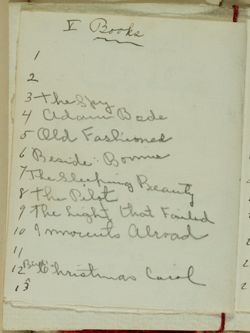 V Books
1
2
3 The Spy
4 Adam Bede
5 Old Fashioned
6 Beside Bonnie
7 The Sleeping Beauty
8 The Pilot
9 The Light that Failed
10 Innocents Abroad
11
12 Christmas Carol
13